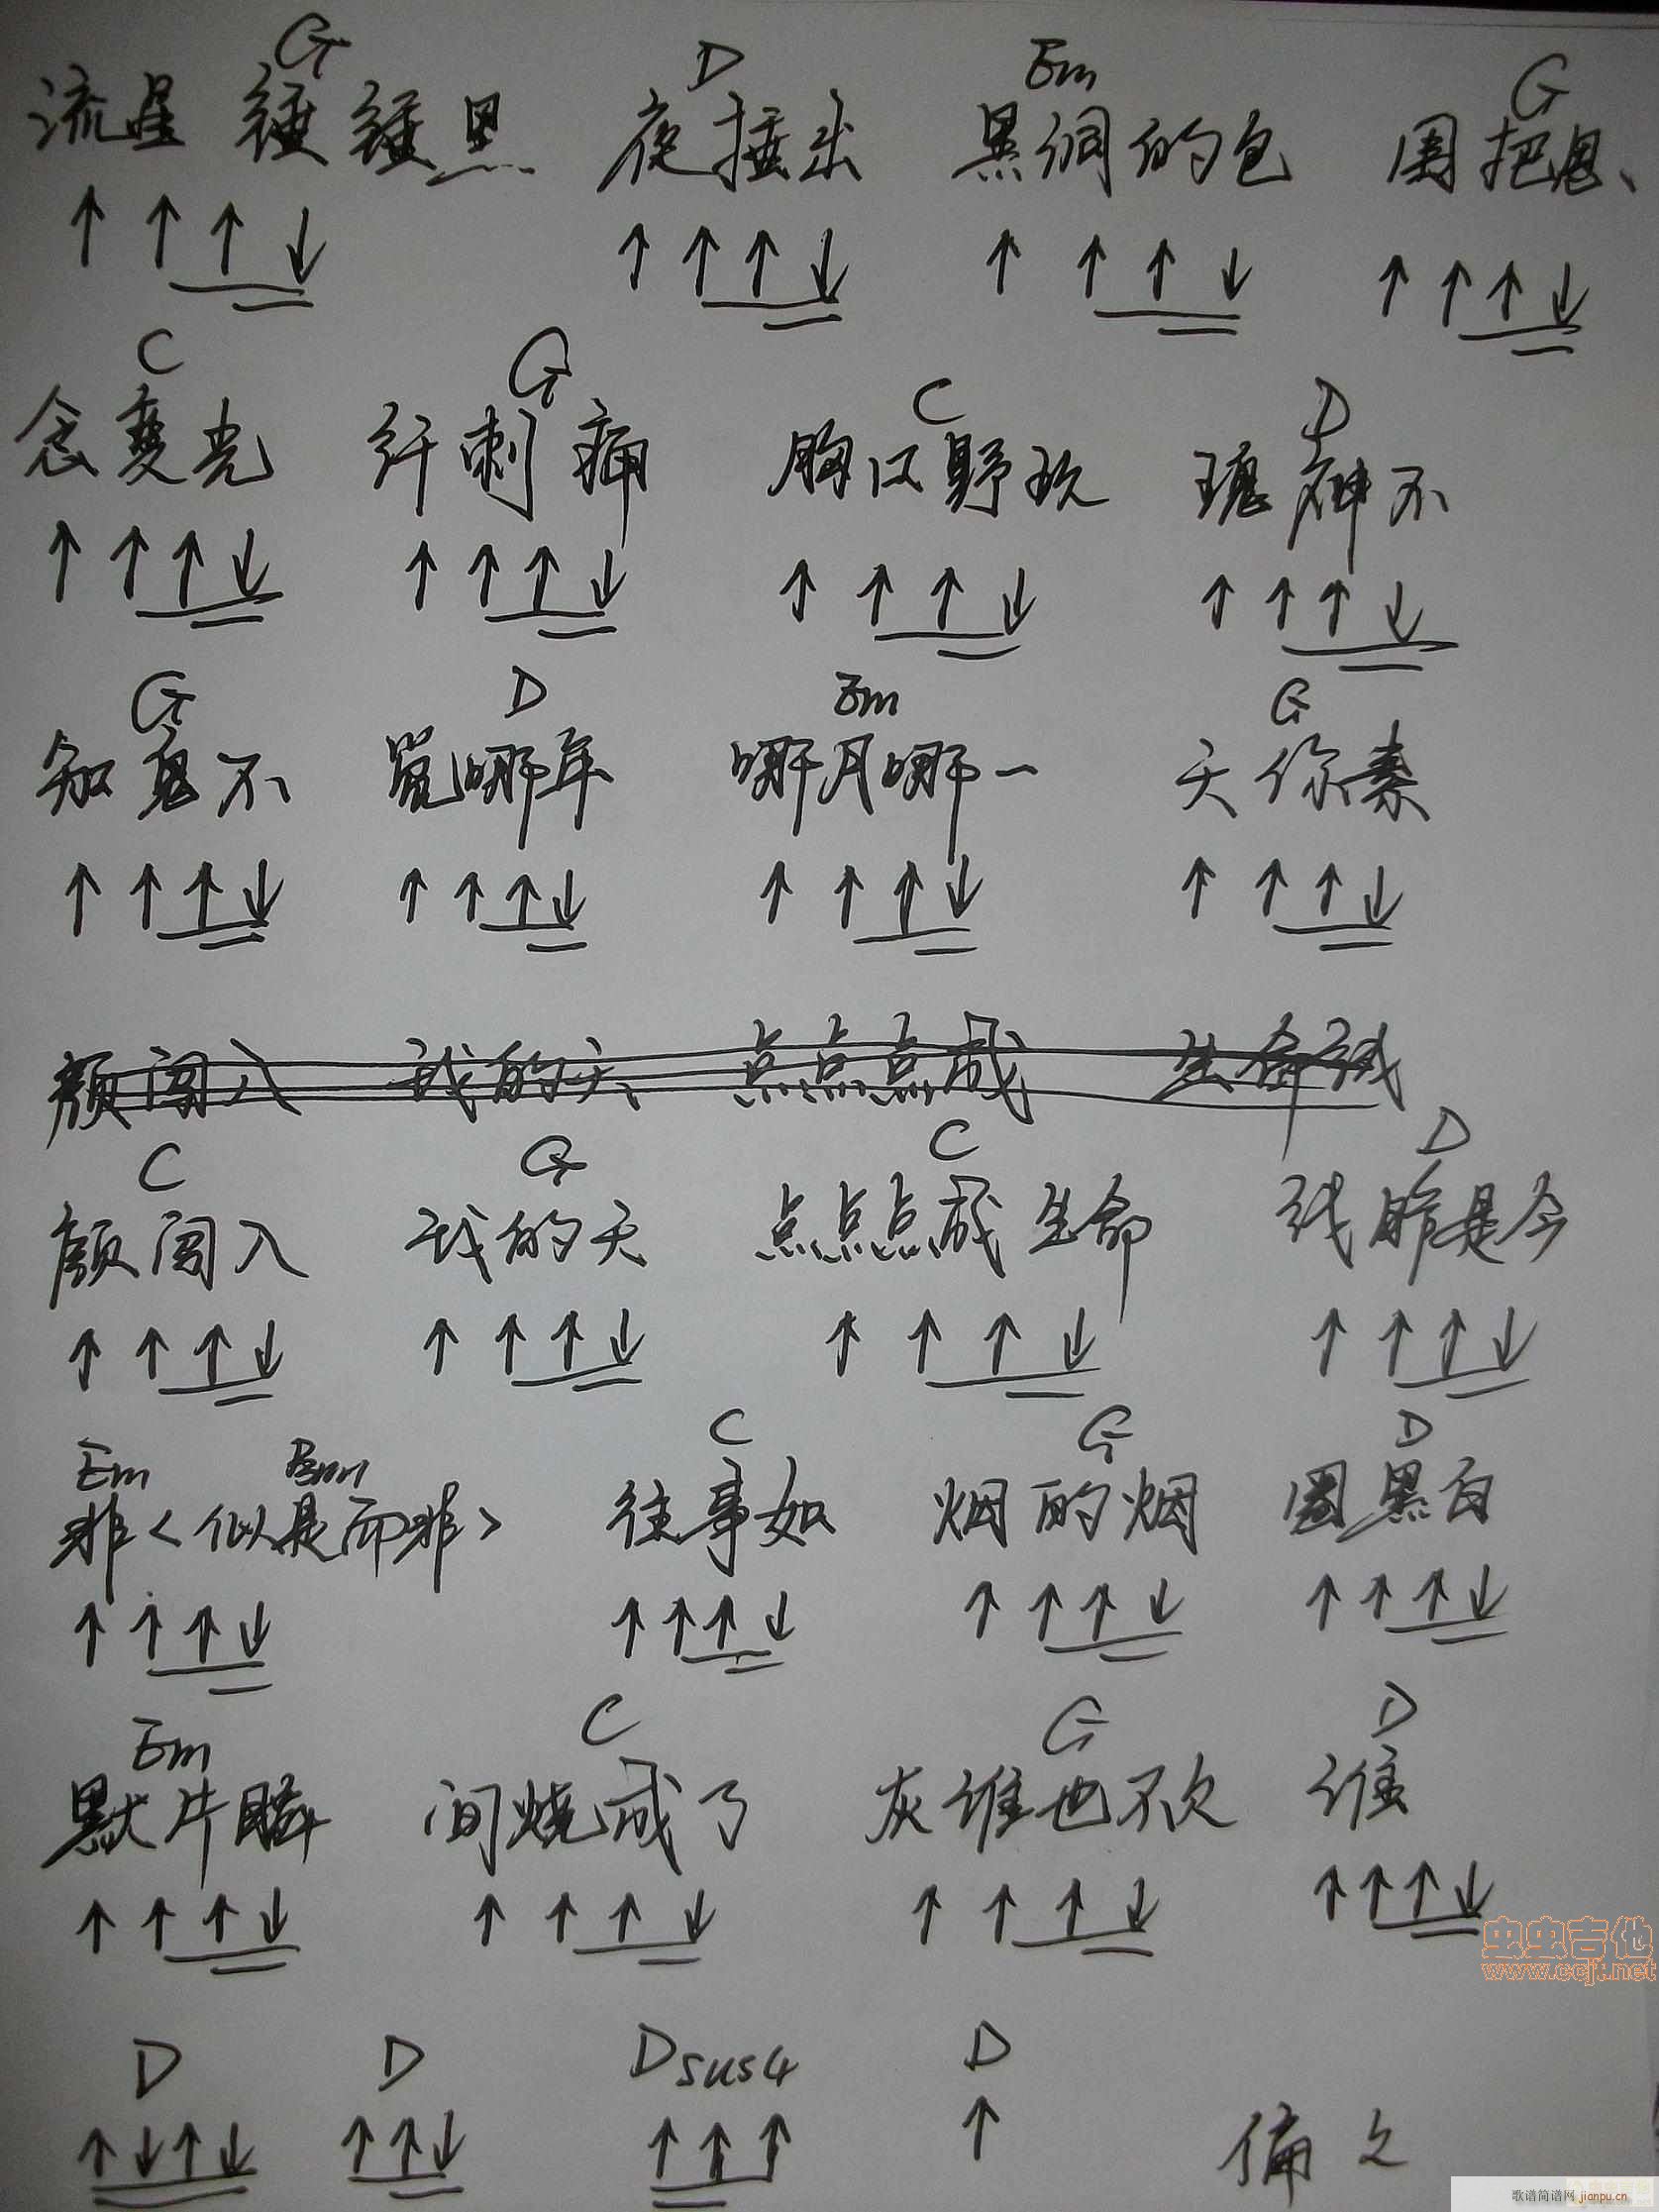 G D Em G
流星 锤锤黑 夜捶出 黑洞的包 围把思、
↑ ↑ ↑ ↓ ↑ ↑ ↑ ↓ ↑ ↑ ↑ ↓ ↑ ↑ ↑ ↓
C G C D
念变光 纤刺痛 胸口野玫 瑰神不
↑ ↑ ↑ ↓ ↑ ↑ ↑ ↓ ↑ ↑ ↑ ↓ ↑ ↑ ↑ ↓
G D Em G
知鬼不 觉哪年 哪月哪一 天你素
↑ ↑ ↑ ↓ ↑ ↑ ↑ ↓ ↑ ↑ ↑ ↓ ↑ ↑ ↑ ↓
颜闯入 我的天 点点点成 生命线
C G C D
颜闯入 我的天 点点点成生命 线昨是今
↑ ↑ ↑ ↓ ↑ ↑ ↑ ↓ ↑ ↑ ↑ ↓ ↑ ↑ ↑ ↓
Em Bm C G D
非<似是而非> 往事如 烟的烟 圈黑白
↑ ↑ ↑ ↓ ↑ ↑ ↑ ↓ ↑ ↑ ↑ ↓ ↑ ↑ ↑ ↓
Em C G D
默片瞬 间烧成了 灰谁也不欠 谁
↑ ↑ ↑ ↓ ↑ ↑ ↑ ↓ ↑ ↑ ↑ ↓ ↑ ↑ ↑ ↓
虫虫吉他
www.ccjt.net
D D Dsus4 D
↑ ↓ ↑ ↓ ↑ ↑ ↓ ↑ ↑ ↑ ↑ 偏
歌谱简谱网 jianpu.cn